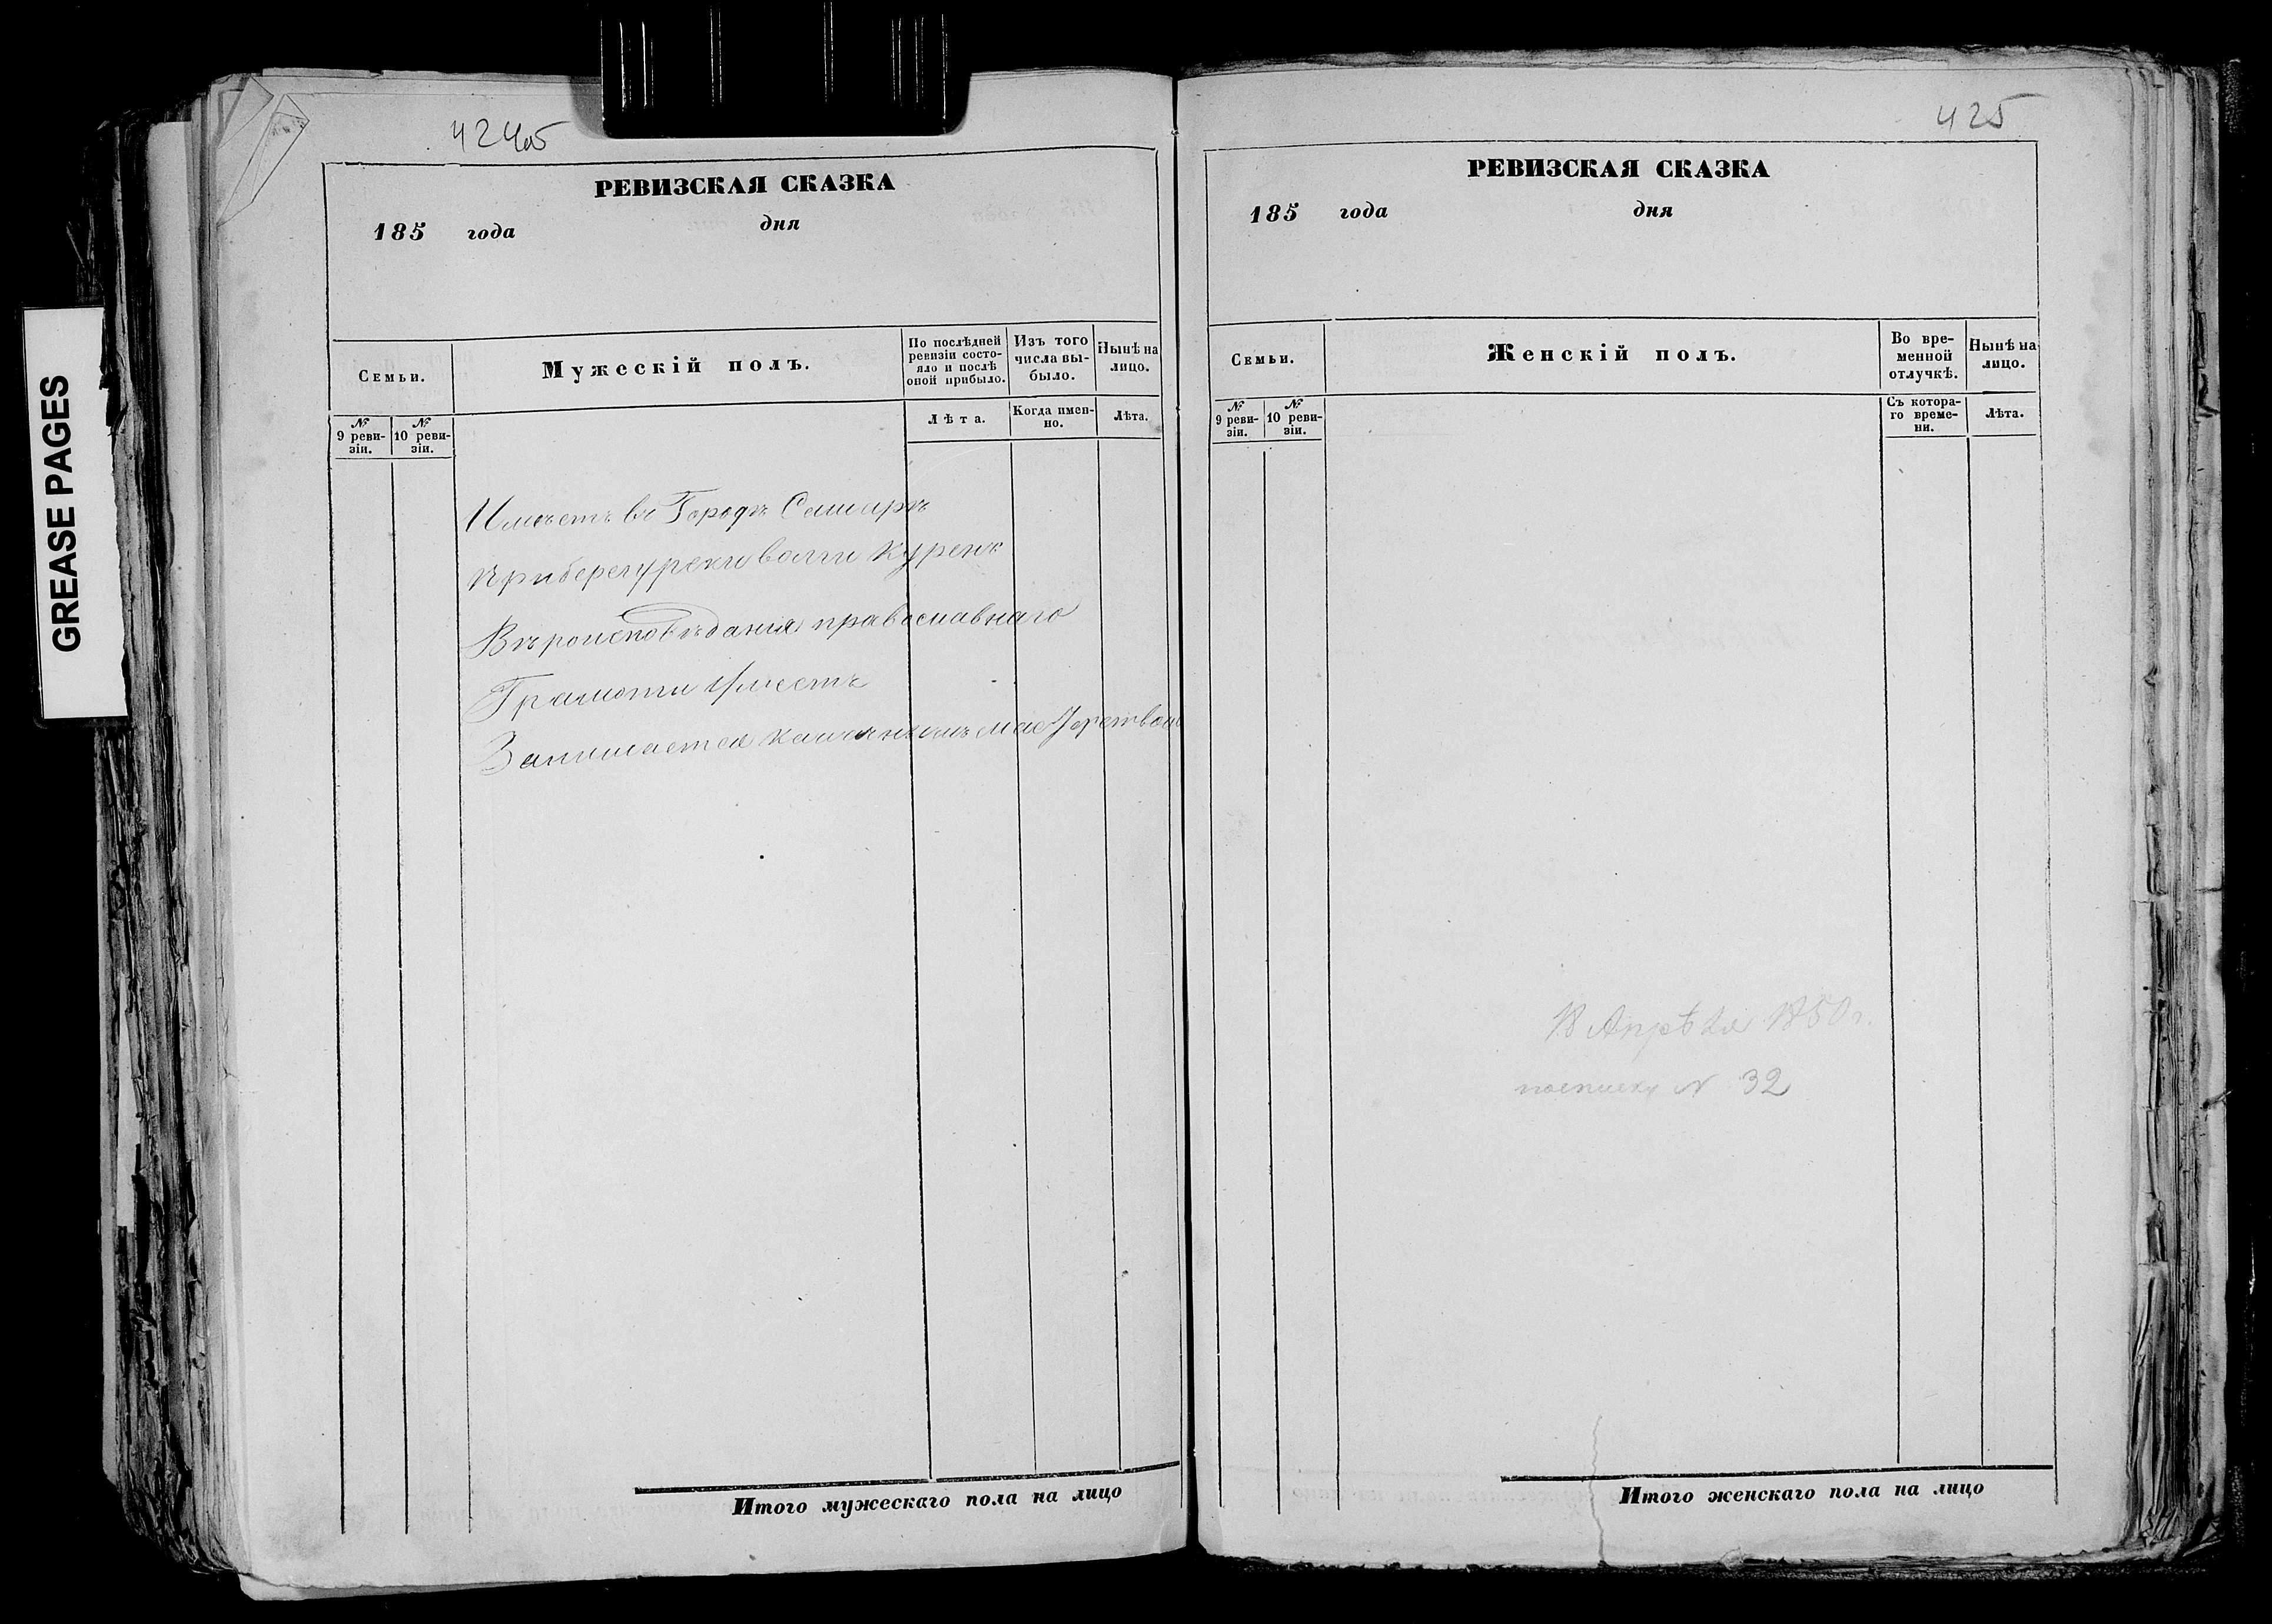 424об
РЕВИЗСКАЯ СКАЗКА
185 года дня
Семьи.
Мужескій полъ.
По послѣдней ревизіи состояло и послѣ оной прибыло.
Изъ того числа выбыло.
Нынѣ на лицо.
№ 9 ревизіи.
№ 10 ревизіи.
Лѣта.
Когда именно.
Лѣта.
Имѣетъ въ Городѣ Самарѣ
при берегу реки волги Курень
Вѣроисповѣдания православнаго
Грамоти Умѣетъ
Занимается
425
РЕВИЗСКАЯ СКАЗКА
185 года дня
Семьи.
Женскій полъ.
Во временной отлучкѣ.
Нынѣ на лицо.
№ 9 ревизіи.
№ 10 ревизіи.
Съ котораго времени.
Лѣта.
18 Апрѣля 1850 г.
№ 32
Итого мужескаго пола на лицо
Итого женскаго пола на лицо
GREASE PAGES